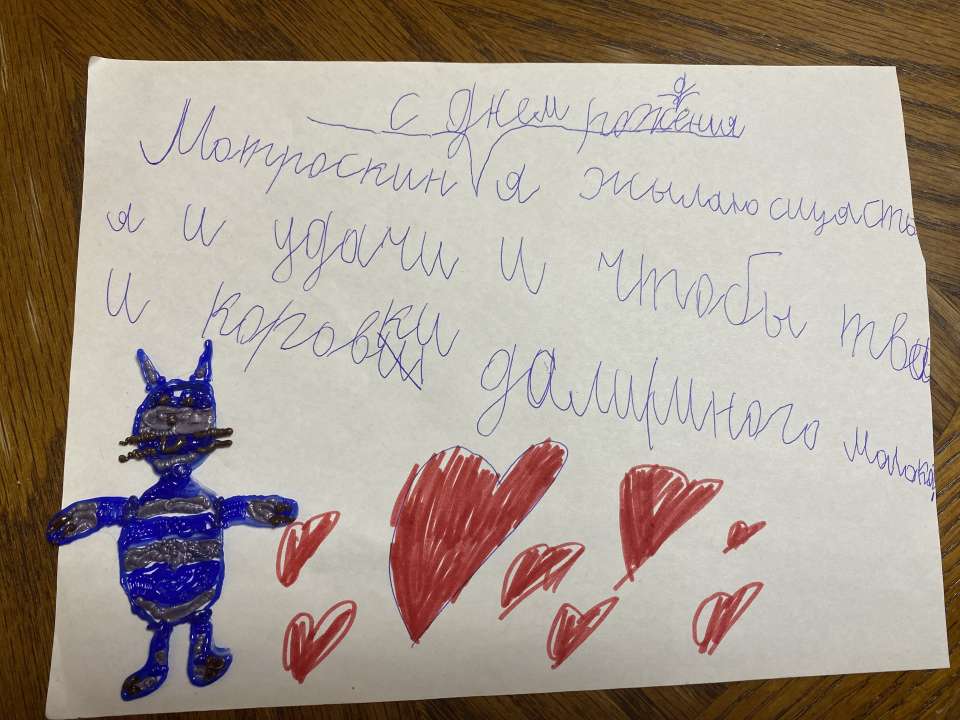 с днем рождения
Матроскин я жылаю сщасть
я и удачи и чтобы твои
и коровки далимного молока